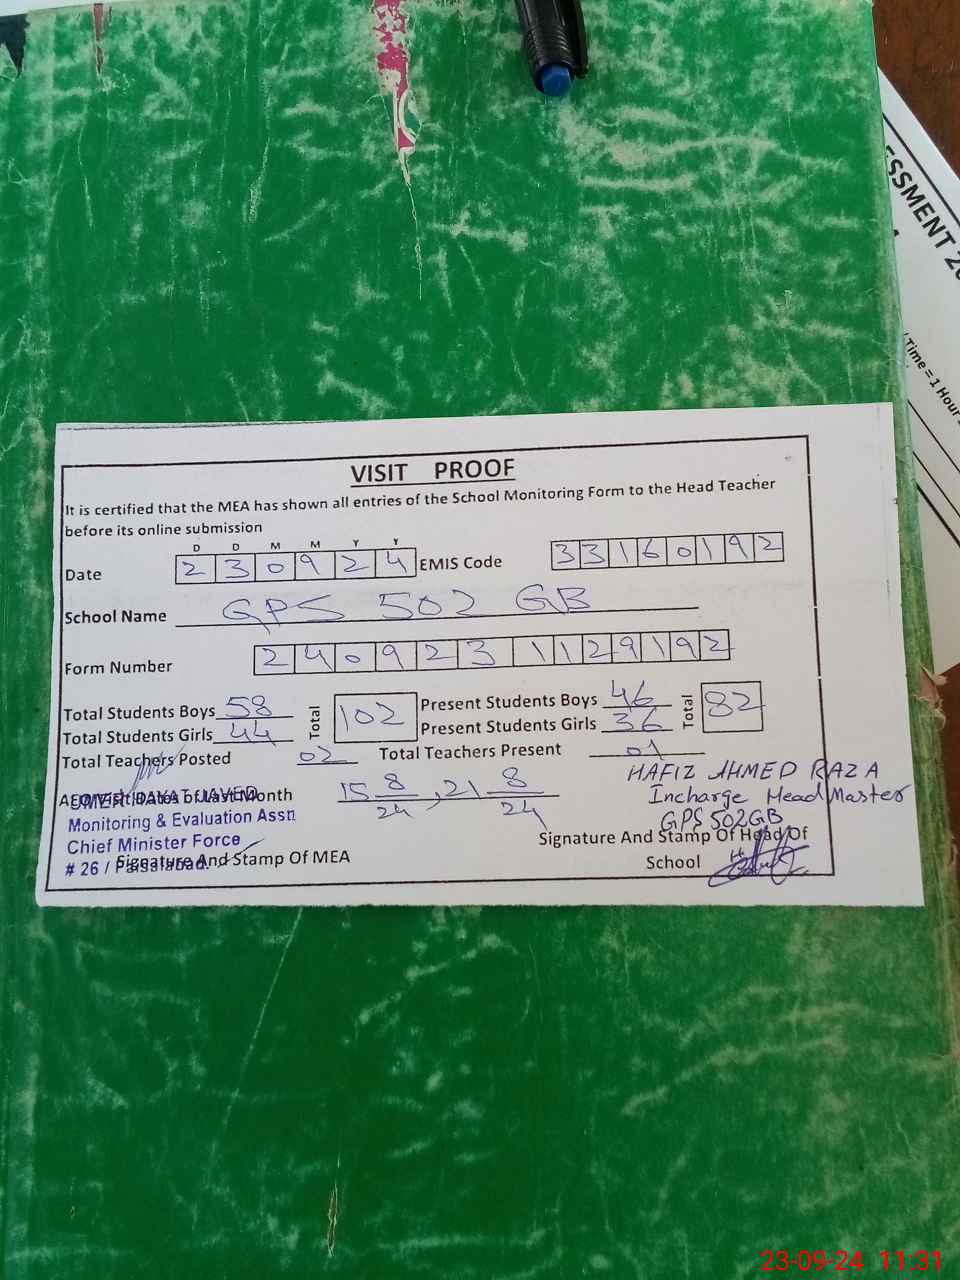 ESSMENT 20
Time = 1 Hour
VISIT PROOF
It is certified that the MEA has shown all entries of the School Monitoring Form to the Head Teacher
before its online submission
D D M M Y Y
Date 2 3 0 9 2 4 EMIS Code 3 3 1 6 0 1 9 2
School Name GPS 502 GB
Form Number 2 4 0 9 2 3 1 1 2 9 1 9 2
Total Students Boys 58 Total 102 Present Students Boys 46 Total 82
Total Students Girls 44 Present Students Girls 36
Total Teachers Posted 02 Total Teachers Present 01
AEO Visit Dates of Last Month 15 8/24, 21 8/24
UMER HAYAT JAVED
Monitoring & Evaluation Assn
Chief Minister Force
# 26 / Faisalabad.
Signature And Stamp Of MEA
HAFIZ AHMED RAZA
Incharge Head Master
GPS 502GB
Signature And Stamp Of Head Of
School
23-09-24 11:31